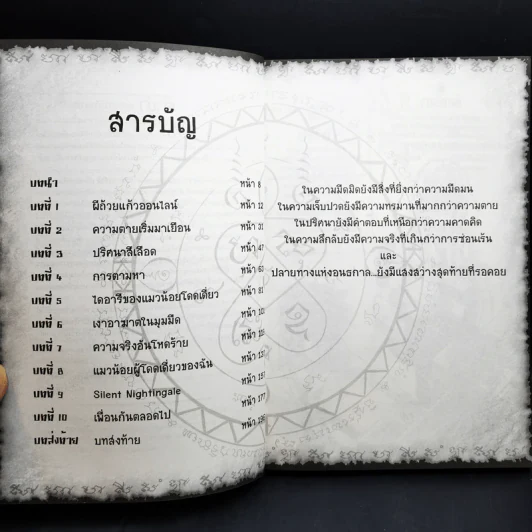 สารบัญ
บทนำ หน้า 8
บทที่ 1 ผีถ้วยแก้วออนไลน์ หน้า 12
บทที่ 2 ความตายเริ่มมาเยือน หน้า 31
บทที่ 3 ปริศนาสีเลือด หน้า 47
บทที่ 4 การตามหา หน้า 60
บทที่ 5 ไดอารี่ของแมวน้อยโดดเดี่ยว หน้า 81
บทที่ 6 เงาอาฆาตในมุมมืด หน้า
บทที่ 7 ความจริงอันโหดร้าย หน้า
บทที่ 8 แมวน้อยผู้โดดเดี่ยวของฉัน หน้า
บทที่ 9 Silent Nightingale หน้า
บทที่ 10 เพื่อนกันตลอดไป หน้า 177
บทส่งท้าย บทส่งท้าย หน้า
ในความมืดมิดยังมีสิ่งที่ยิ่งกว่าความมืดมน
ในความเจ็บปวดยังมีความทรมานที่มากกว่าความตาย
ในปริศนายังมีคำตอบที่เหนือกว่าความคาดคิด
ในความลึกลับยังมีความจริงที่เกินกว่าการซ่อนเร้น
และ
ปลายทางแห่งอนธกาล...ยังมีแสงสว่างสุดท้ายที่รอคอย